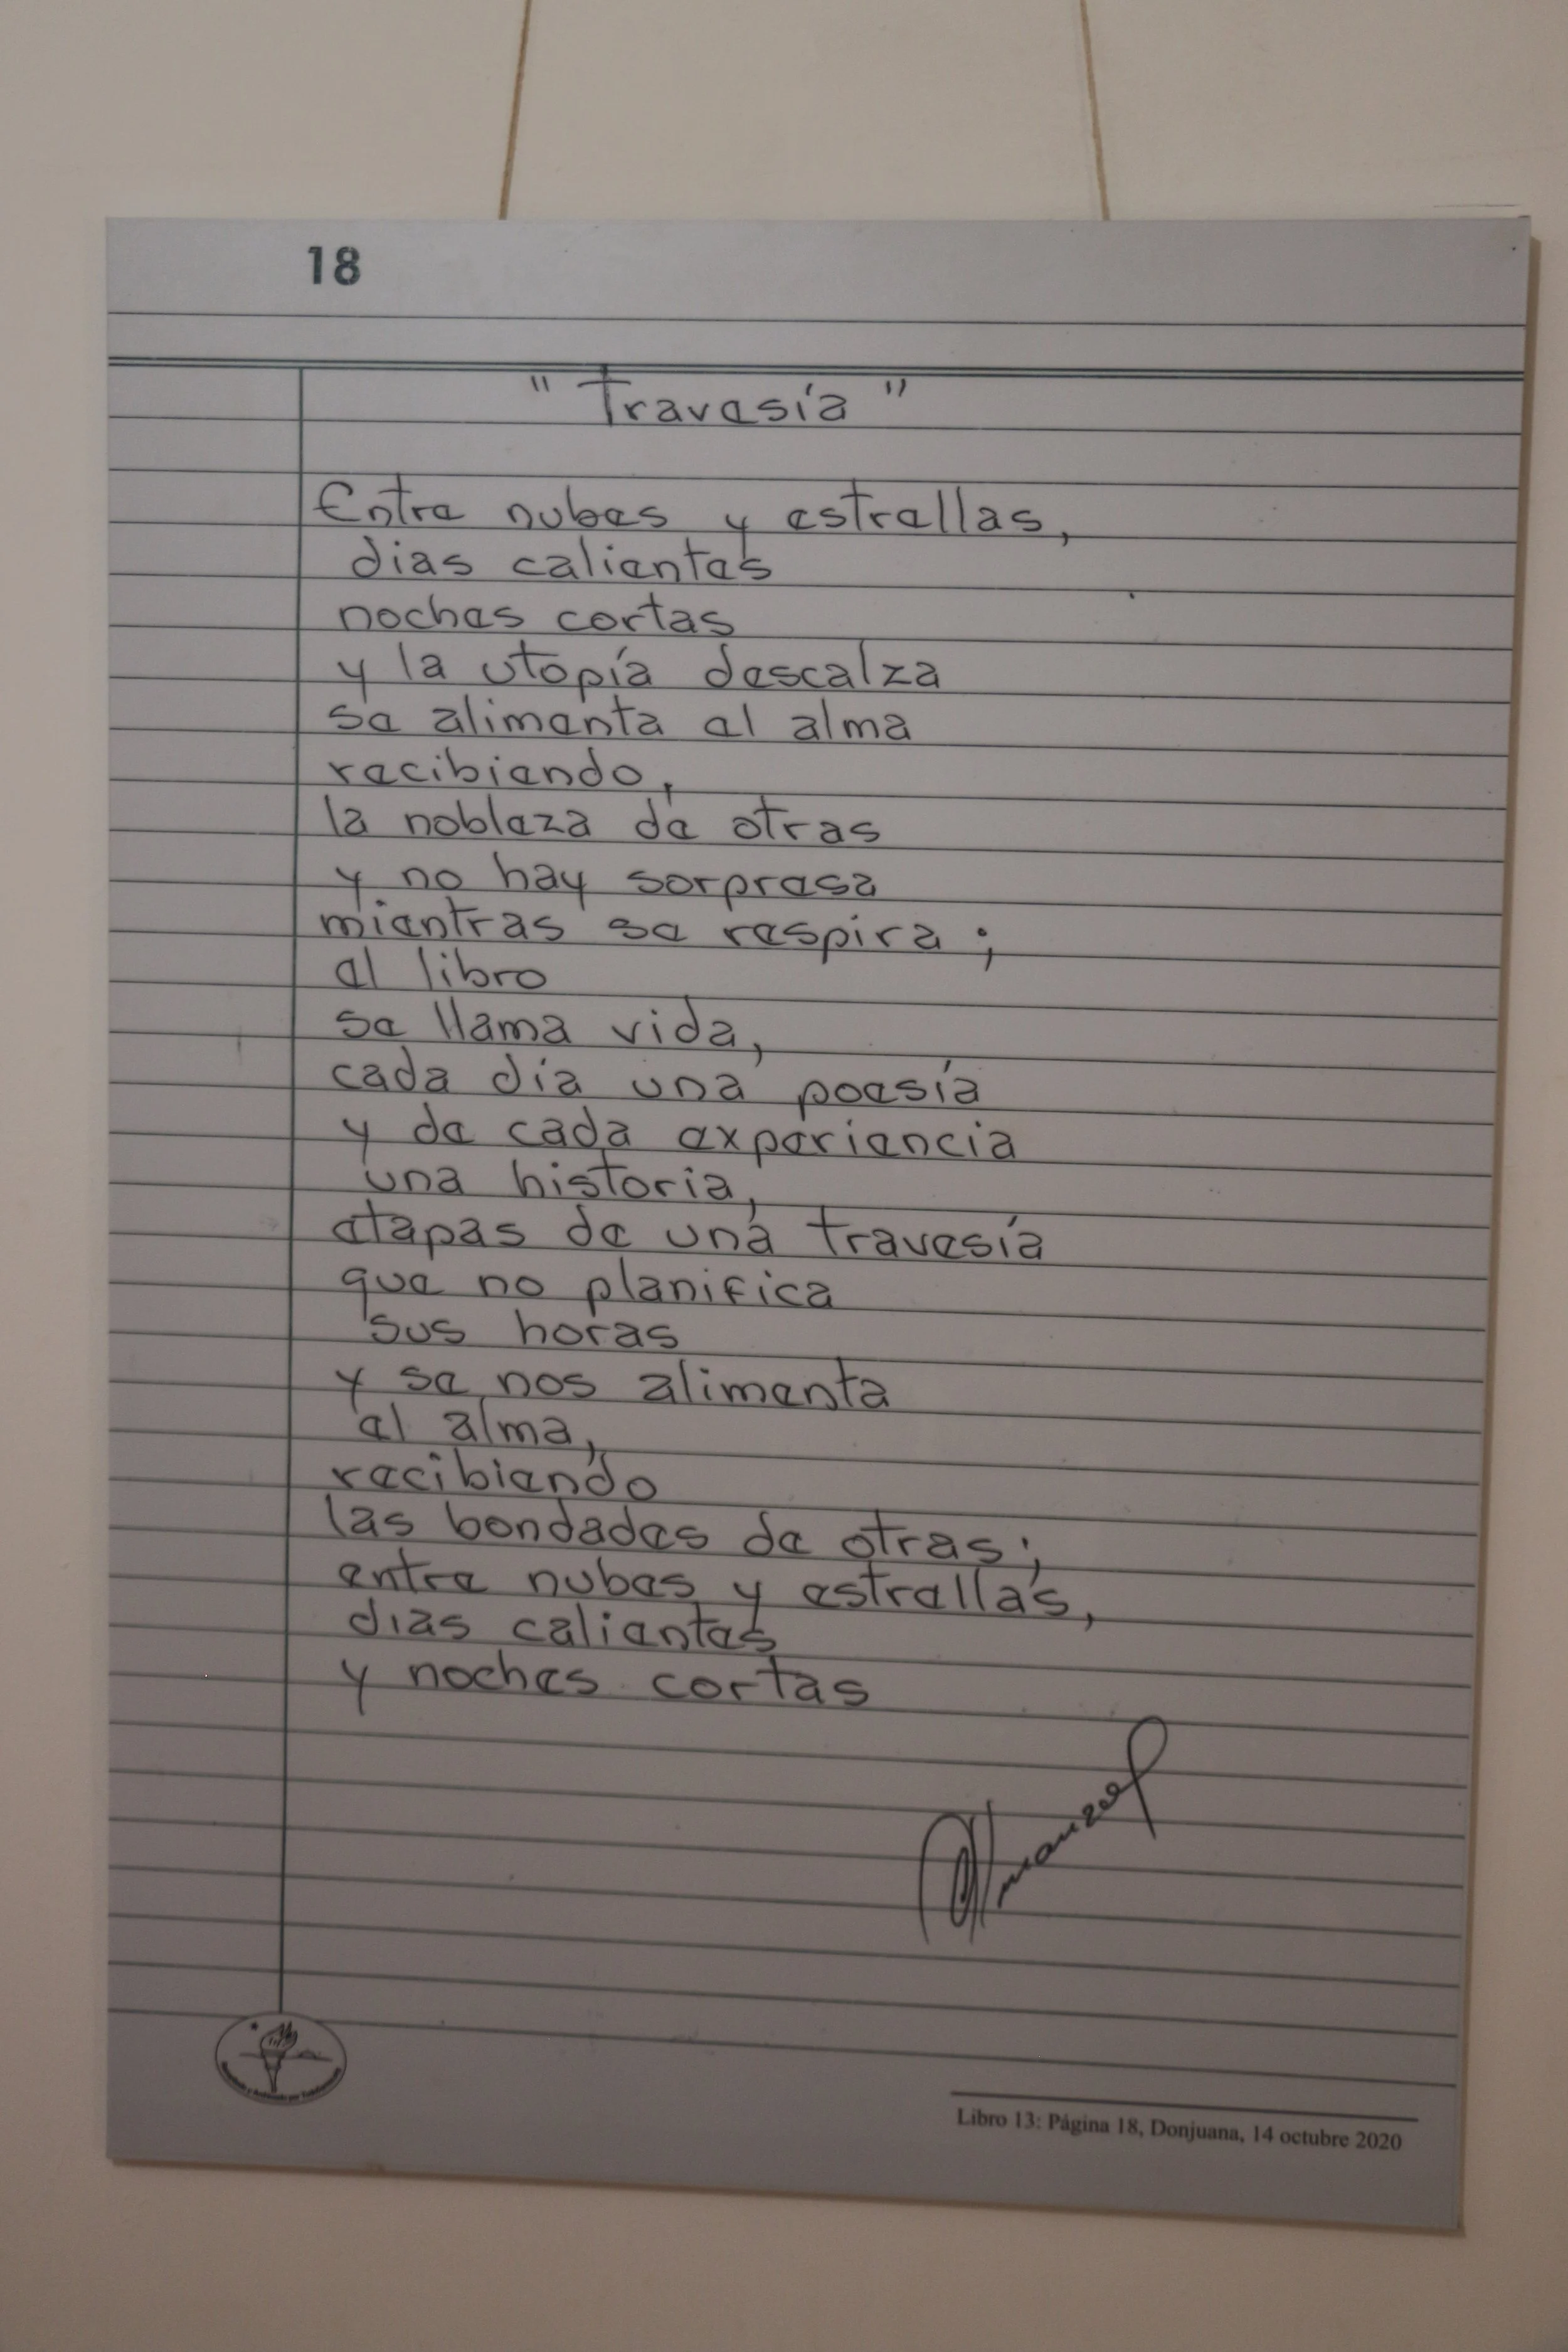 18
"Travesía"
Entre nubes y estrellas,
dias calientes
noches cortas
y la utopía descalza
se alimenta el alma
recibiendo,
la nobleza de otras
y no hay sorpresa
mientras se respira;
el libro
se llama vida,
cada día una poesía
y de cada experiencia
una historia,
etapas de una travesía
que no planifica
sus horas
y se nos alimenta
el alma,
recibiendo
las bondades de otras;
entre nubes y estrellas,
dias calientes
y noches cortas
Libro 13: Página 18, Donjuana, 14 octubre 2020